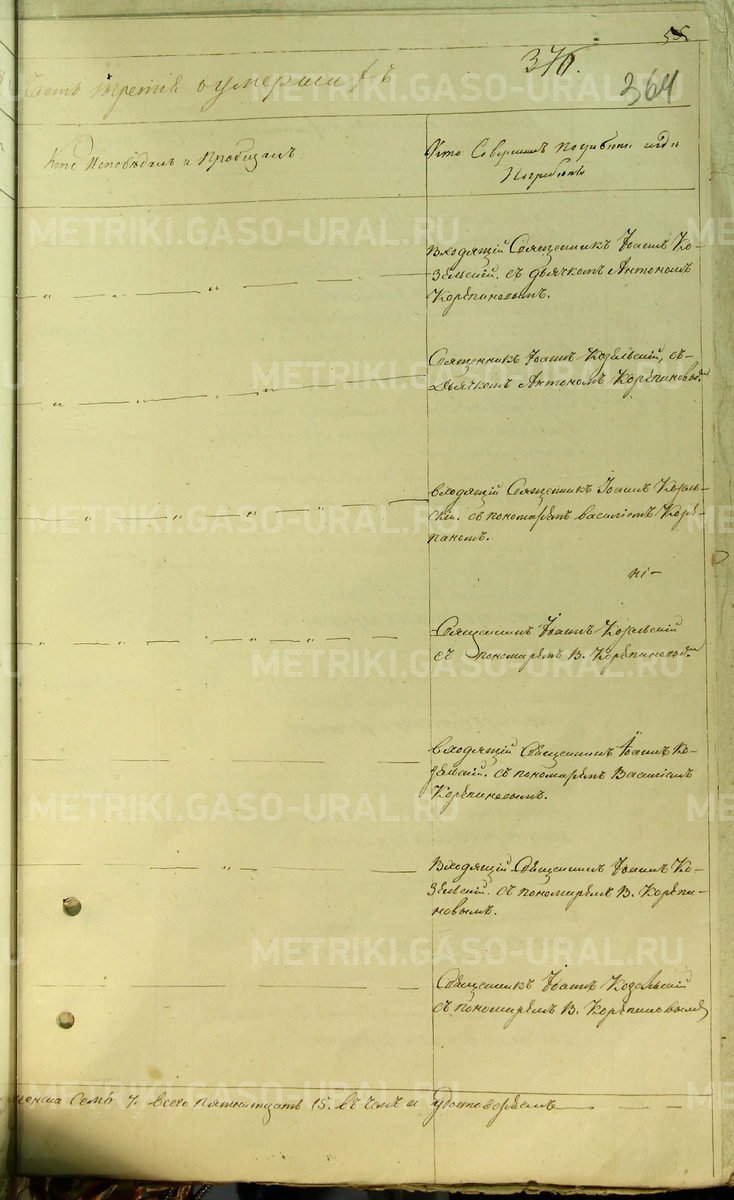 55
376.
364
Часть третія о умершихъ
Кто Исповѣдалъ и Пріобщалъ.
Кто Совершилъ погребеніе и гдѣ
Погребены
Входящій Священникъ Іоаннъ Ко-
зельскій. съ дьячкомъ Антономъ
Корѣпиновымъ.
Священникъ Іоаннъ Козельскій, съ-
Дьячкомъ Антономъ Корѣпиновымъ.
Входящій Священникъ Іоаннъ Козель-
скій. съ пономаремъ Василіемъ Корѣ-
Священникъ Іоаннъ Козельскій
съ пономарёмъ В. Корѣпиновымъ.
Входящій Священникъ Іоаннъ Ко-
зельскій. съ пономарёмъ Василіемъ
Корѣпиновымъ.
Входящій Священникъ Іоаннъ Ко-
зельскій. съ пономарёмъ В. Корѣпи-
новымъ.
Священникъ Іоаннъ Козельскій
съ пономарёмъ В. Корѣпиновымъ
женска Семь 7. всего пятнатцать 15. въ чемъ и удостовѣряемъ
METRIKI.GASO-URAL.RU